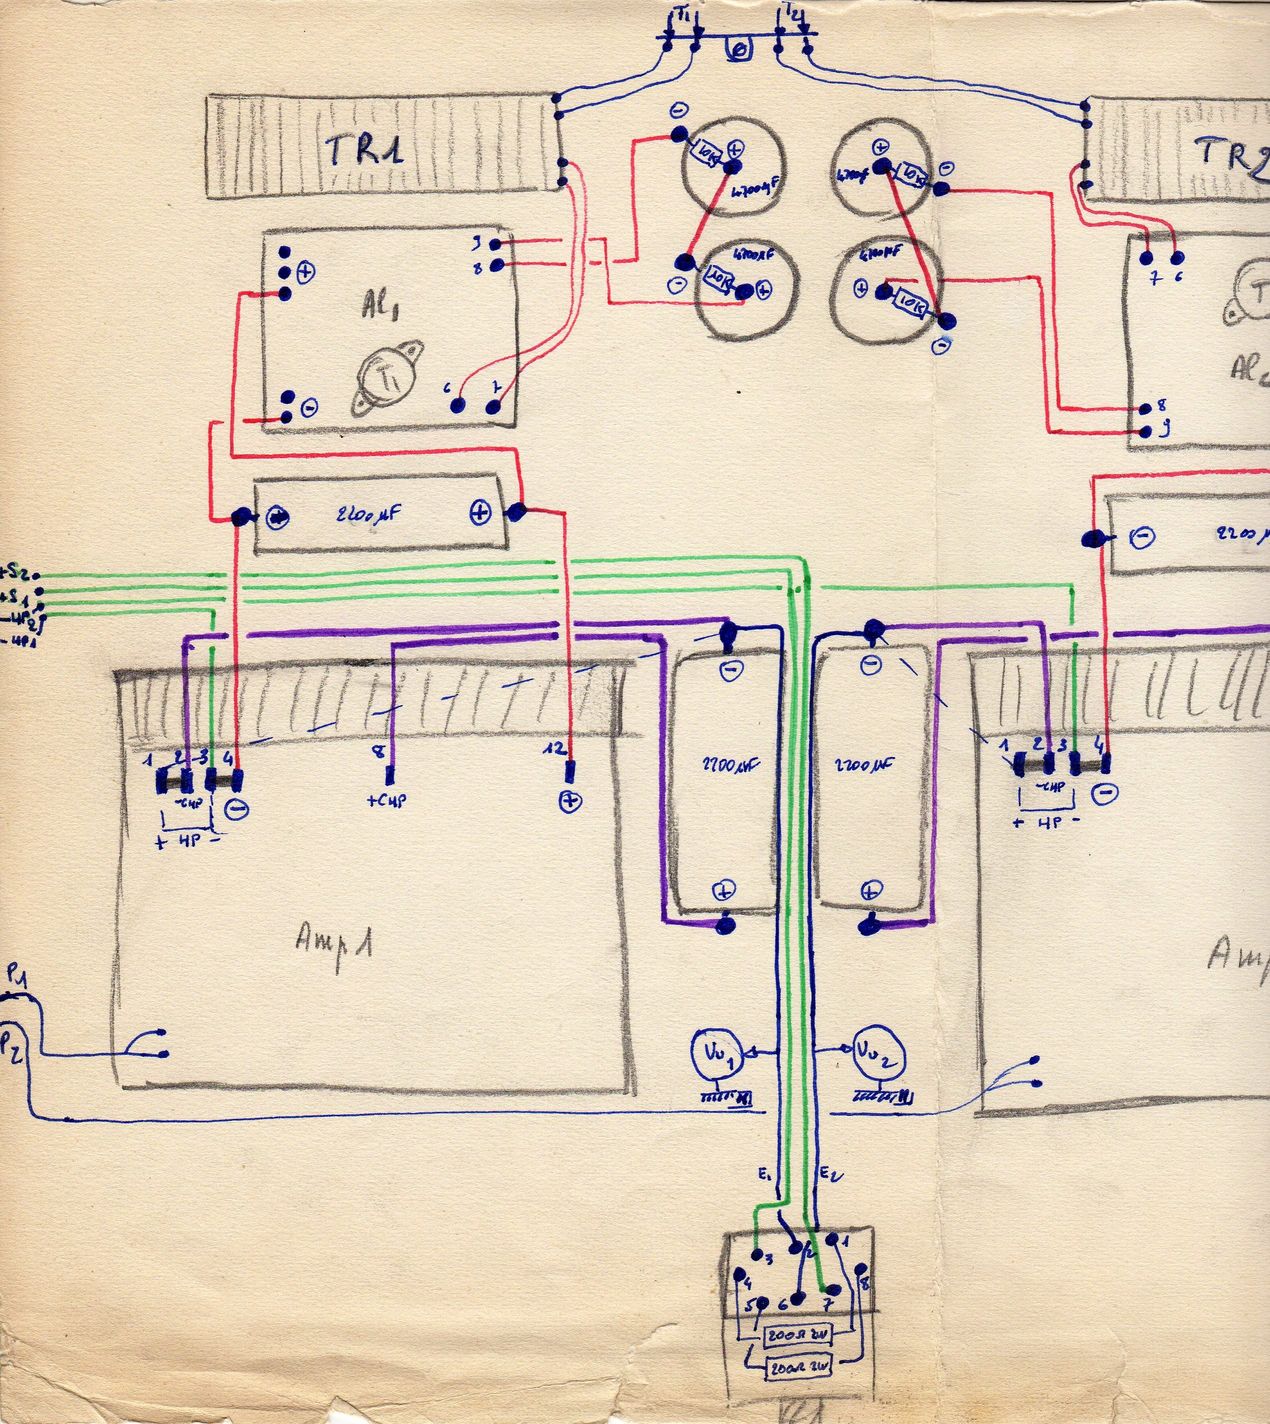 T1 T2
TR1
TR2
⊖
10K ⊕
4700µF
⊕
10K ⊖
4700µF
9
8
⊕
Al1
T1
6 7
⊖
4700µF
⊖ 10K ⊕
4700µF
⊕ 10K
⊖
7 6
T
Al
8
9
⊖
2200µF ⊕
⊖ 2200µ
+S2
+S1
-HP2
-HP1
1 2 3 4
-CHP
⊖
+ HP -
8
+CHP
12
⊕
⊖
2200µF
⊕
⊖
2200µF
⊕
1 2 3 4
-CHP
⊖
+ HP -
Amp1
Amp
P1
P2
Vu1
Vu2
E1 E2
1
2
3
4
5 6 7
8
200Ω 2W
200Ω 2W